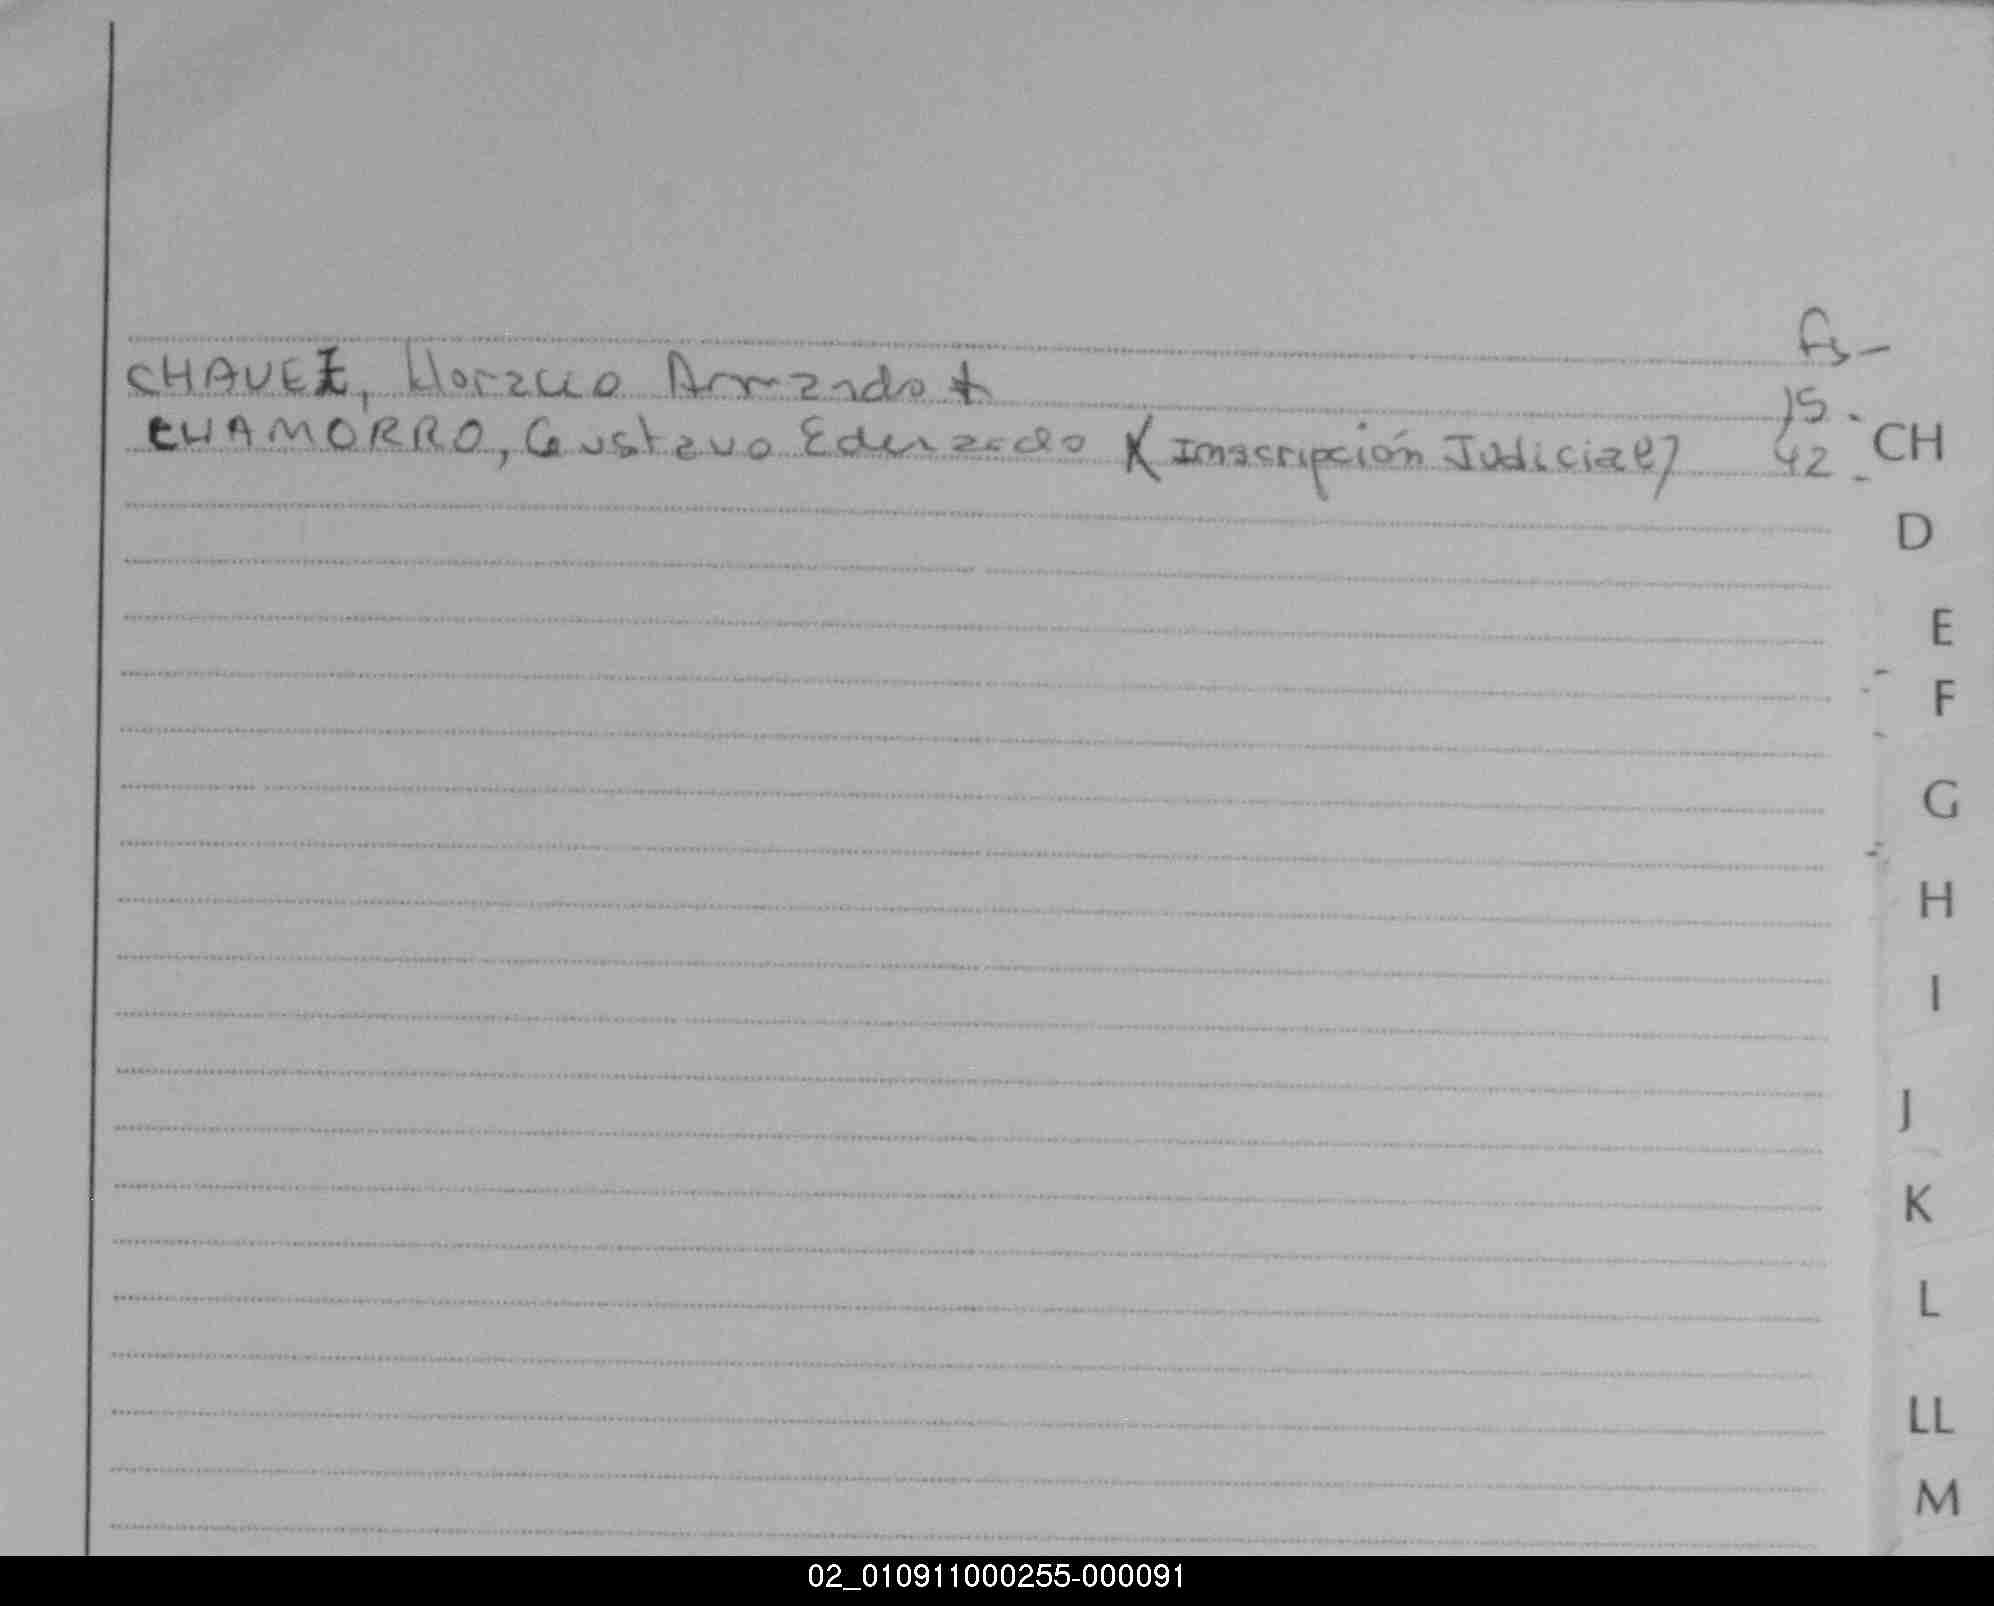 Fs-
CHAVEZ, Horacio Armando + 15.
CHAMORRO, Gustavo Eduardo X (Inscripción Judicial) 42-
CH
D
E
F
G
H
I
J
K
L
LL
M
02_010911000255-000091